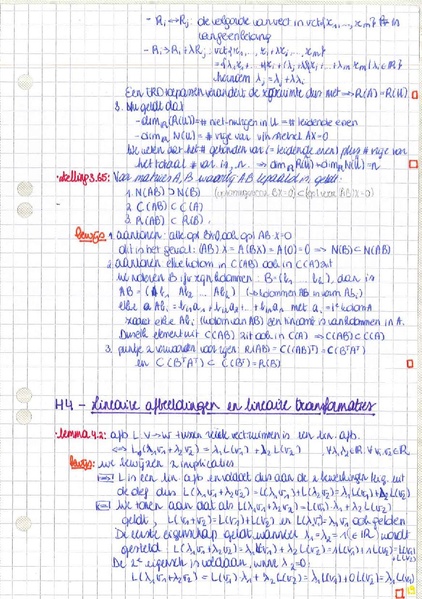 - Ri ↔ Rj: de volgorde van vect in vct{r1, ..., rm} is
van geen belang
- Ri → Ri + λRj: vct{r1, ..., ri + λrj, ..., rm}
Een ERO toepassen verandert de rijruimte dus niet → R(A) = R(U)
3. Nu geldt dat
- dim R(U) = # niet-nulrijen in U = # leidende enen
- dim N(U) = # vrije var v/h stelsel AX=0
We weten dat het # gebonden var (= leidende enen) plus # vrije var
het totaal # var is, n. ⇒ dim R(U) + dim N(U) = n
• stelling 3.65: Voor matrices A, B waarvoor AB bepaald is, geldt:
1. N(AB) ⊃ N(B)
2. C(AB) ⊂ C(A)
3. R(AB) ⊂ R(B).
bewijs 1. aantonen: alle opl BX=0 ook opl ABX=0
dit is het geval: (AB)X = A(BX) = A(0) = 0 ⇒ N(B) ⊂ N(AB)
2. aantonen elke kolom in C(AB) ook in C(A) zit
we noteren B ifv zijn kolommen: B = (b1 ... bk), dan is
AB = (Ab1 Ab2 ... Abk) (→ kolommen AB in vorm Abi)
zodat elke Abi (kolom van AB) een lincomb is van kolommen in A.
Dus elk element uit C(AB) zit ook in C(A) ⇒ C(AB) ⊂ C(A)
3. puntje 2 verwoorden voor rijen: R(AB) = C((AB)ᵀ) = C(BᵀAᵀ)
en C(BᵀAᵀ) ⊂ C(Bᵀ) = R(B)
H4 - Lineaire afbeeldingen en lineaire transformaties
• lemma 4.2: afb L: V → W tussen reële vectruimten is een lin. afb.
⇔ L(λ1v1 + λ2v2) = λ1L(v1) + λ2L(v2) ∀λ1, λ2 ∈ ℝ, ∀v1, v2 ∈ V
bewijs: we bewijzen 2 implicaties
⇒ L is een lin. afb en voldoet dus aan de 2 bewerkingen. uit
de def dus L(λ1v1 + λ2v2) = L(λ1v1) + L(λ2v2) = λ1L(v1) + λ2L(v2)
⇐ We tonen aan dat als L(λ1v1 + λ2v2) = L(v1)λ1 + λ2L(v2)
geldt, L(v1+v2) = L(v1) + L(v2) en L(λv) = λL(v) ook gelden
De eerste eigenschap geldt wanneer λ1 = λ2 = 1 (∈ ℝ) wordt
gesteld: L(λ1v1 + λ2v2) = λ1L(v1) + λ2L(v2) = 1L(v1) + 1L(v2) = L(v1) + L(v2)
De 2e eigensch is voldaan, wnr λ2 = 0:
L(λ1v1 + λ2v2) = L(v1)λ1 + λ2L(v2) = λ1L(v1) + 0L(v2) = λ1L(v1)